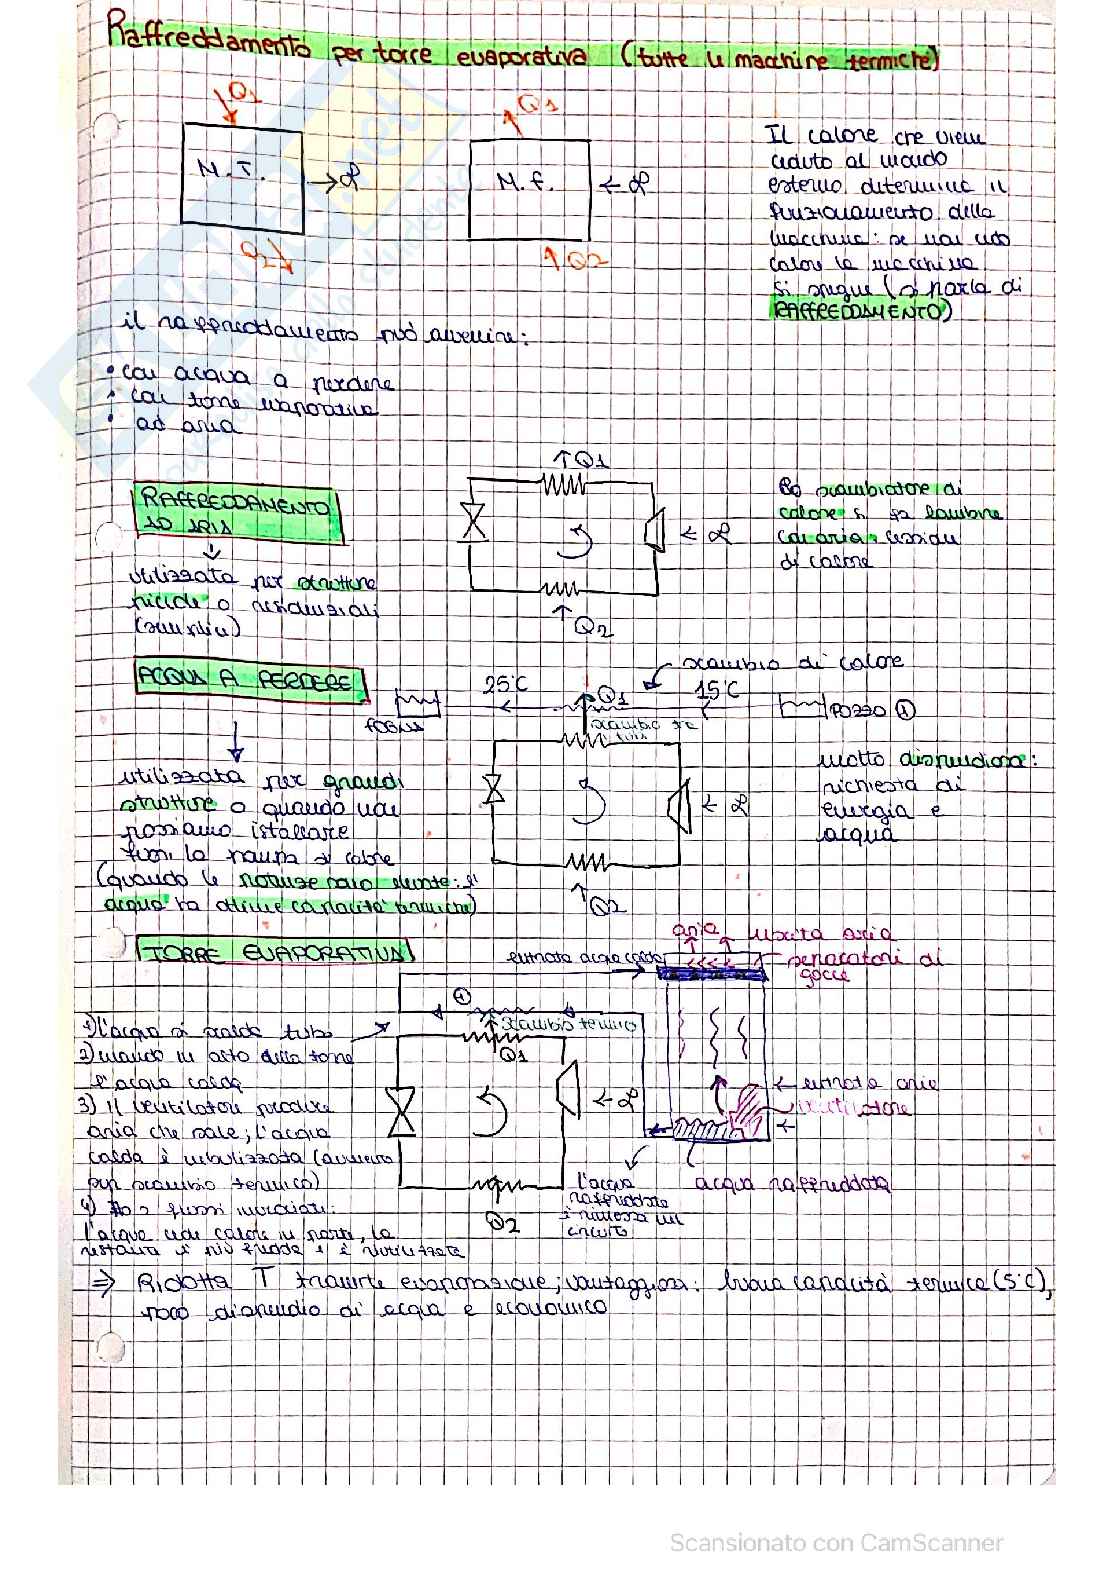 Raffreddamento per torre evaporativa (tutte le macchine termiche)
Q1
M.T.
→ L
Q2
Q1
M.F.
← L
Q2
Il calore che viene
ceduto al mondo
esterno determina il
funzionamento della
macchina: se non cedo
calore la macchina
si spegne (si parla di
RAFFREDDAMENTO)
il raffreddamento può avvenire:
• con acqua a perdere
• con torre evaporativa
• ad aria
RAFFREDDAMENTO
AD ARIA
utilizzata per strutture
piccole o residenziali
(semplice)
Q1
← L
Q2
Lo scambiatore di
calore si fa lambire
con aria: cessione
di calore
ACQUA A PERDERE
utilizzata per grandi
strutture o quando non
possiamo istallare
fuori la pompa di calore
(quando le potenze sono elevate: l'
acqua ha ottime capacità termiche)
scambio di calore
25°C
Q1
15°C
FOGNA
POZZO ①
scambio
← L
Q2
molto dispendioso:
richiesta di
energia e
acqua
TORRE EVAPORATIVA
1) l'acqua si scalda tubo
2) mando in alto della torre
l'acqua calda
3) Il ventilatore produce
aria che sale; l'acqua
calda è nebulizzata (avviene
scambio termico)
4) flussi incrociati:
l'acqua cede calore in parte, la
restante è più fredda e è riutilizzata
entrata acqua calda
aria
uscita aria
separatori di
gocce
①
scambio termico
Q1
← L
Q2
← entrata aria
ventilatore
l'acqua
raffreddata
è rimessa nel
circuito
acqua raffreddata
⇒ Ridotta T tramite evaporazione; vantaggiosa: buona capacità termica (5°C),
poco dispendio di acqua e economico
Scansionato con CamScanner